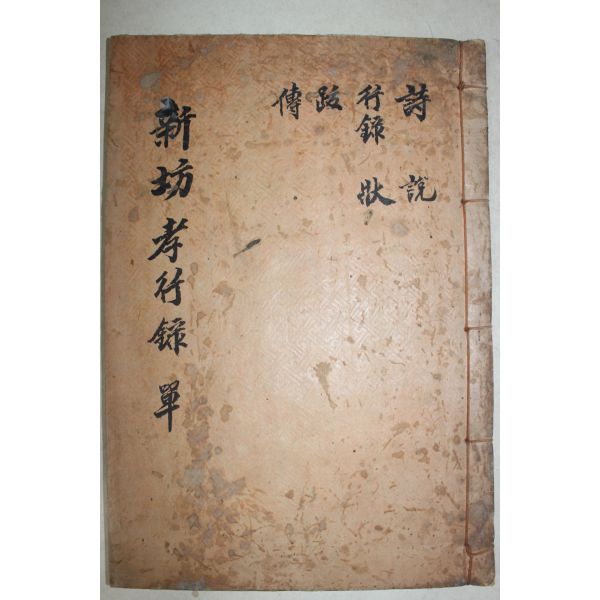 詩 說
行錄 狀
跋
傳
新坊孝行錄 單